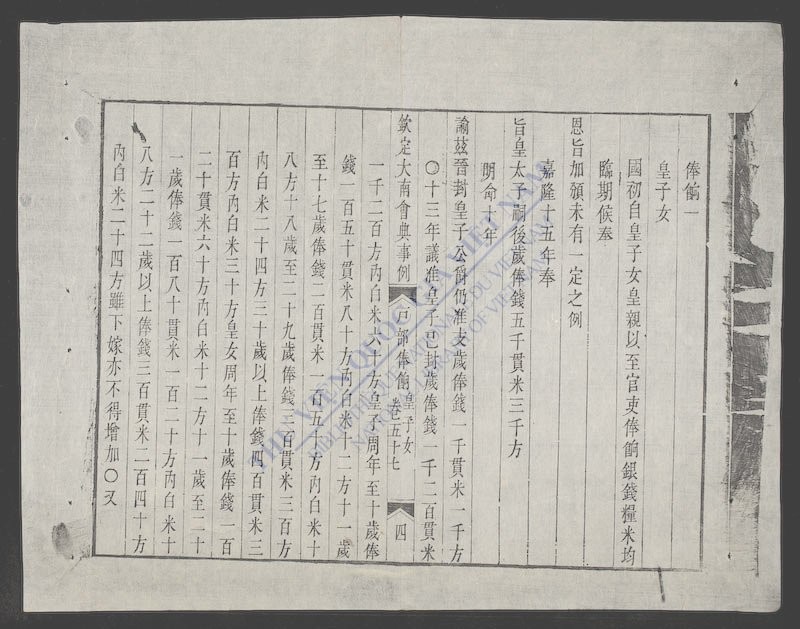 俸餉一
皇子女
國初自皇子女皇親以至官吏俸餉銀錢糧米均
臨期候奉
恩旨加頒未有一定之例
嘉隆十五年奉
旨皇太子嗣後歲俸錢五千貫米三千方
明命十年
諭茲晉封皇子公爵仍准支歲俸錢一千貫米一千方
〇十三年議准皇子已封歲俸錢一千二百貫米
欽定大南會典事例 戶部俸餉 皇子女 卷五十七 四
一千二百方內白米六十方皇子周年至十歲俸
錢一百五十貫米八十方內白米十二方十一歲
至十七歲俸錢二百貫米一百五十方內白米十
八方十八歲至二十九歲俸錢三百貫米三百方
內白米二十四方三十歲以上俸錢四百貫米三
百方內白米三十方皇女周年至十歲俸錢一百
二十貫米六十方內白米十二方十一歲至二十
一歲俸錢一百八十貫米一百二十方內白米十
八方二十二歲以上俸錢三百貫米二百四十方
內白米二十四方雖下嫁亦不得增加〇又
THƯ VIỆN QUỐC GIA VIỆT NAM
BIBLIOTHÈQUE NATIONALE DU VIETNAM
NATIONAL LIBRARY OF VIETNAM